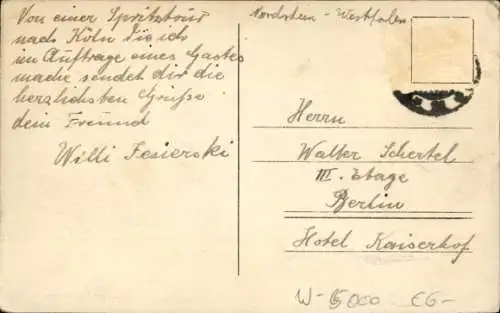 Von einer Spritztour
nach Köln die ich
im Auftrage eines Gastes
mache sendet dir die
herzlichsten Grüße
dein Freund
Willi
Nordrhein - Westfalen
Herrn
Walter Schertel
III. Etage
Berlin
Hotel Kaiserhof
W-5000 €6-